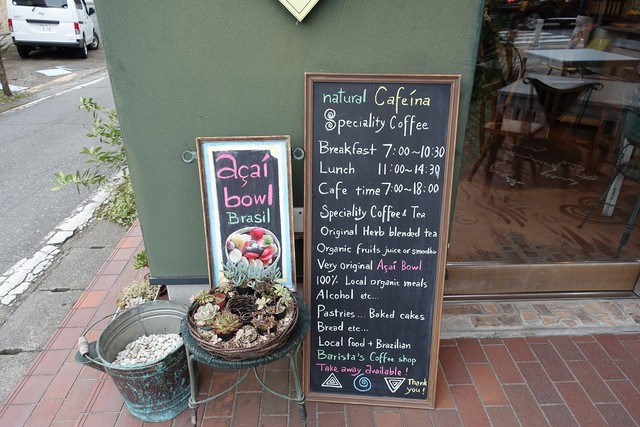 açaí
bowl
Brasil
natural Cafeína
Speciality Coffee
Breakfast 7:00~10:30
Lunch 11:00~14:30
Cafe time 7:00~18:00
Speciality Coffee & Tea
Original Herb blended tea
Organic fruits juice or smoothie
Very original Açaí Bowl
100% Local organic meals
Alcohol etc...
Pastries... Baked cakes
Bread etc...
Local food + Brazilian
Barista's Coffee shop
Take away available!
Thank
you!